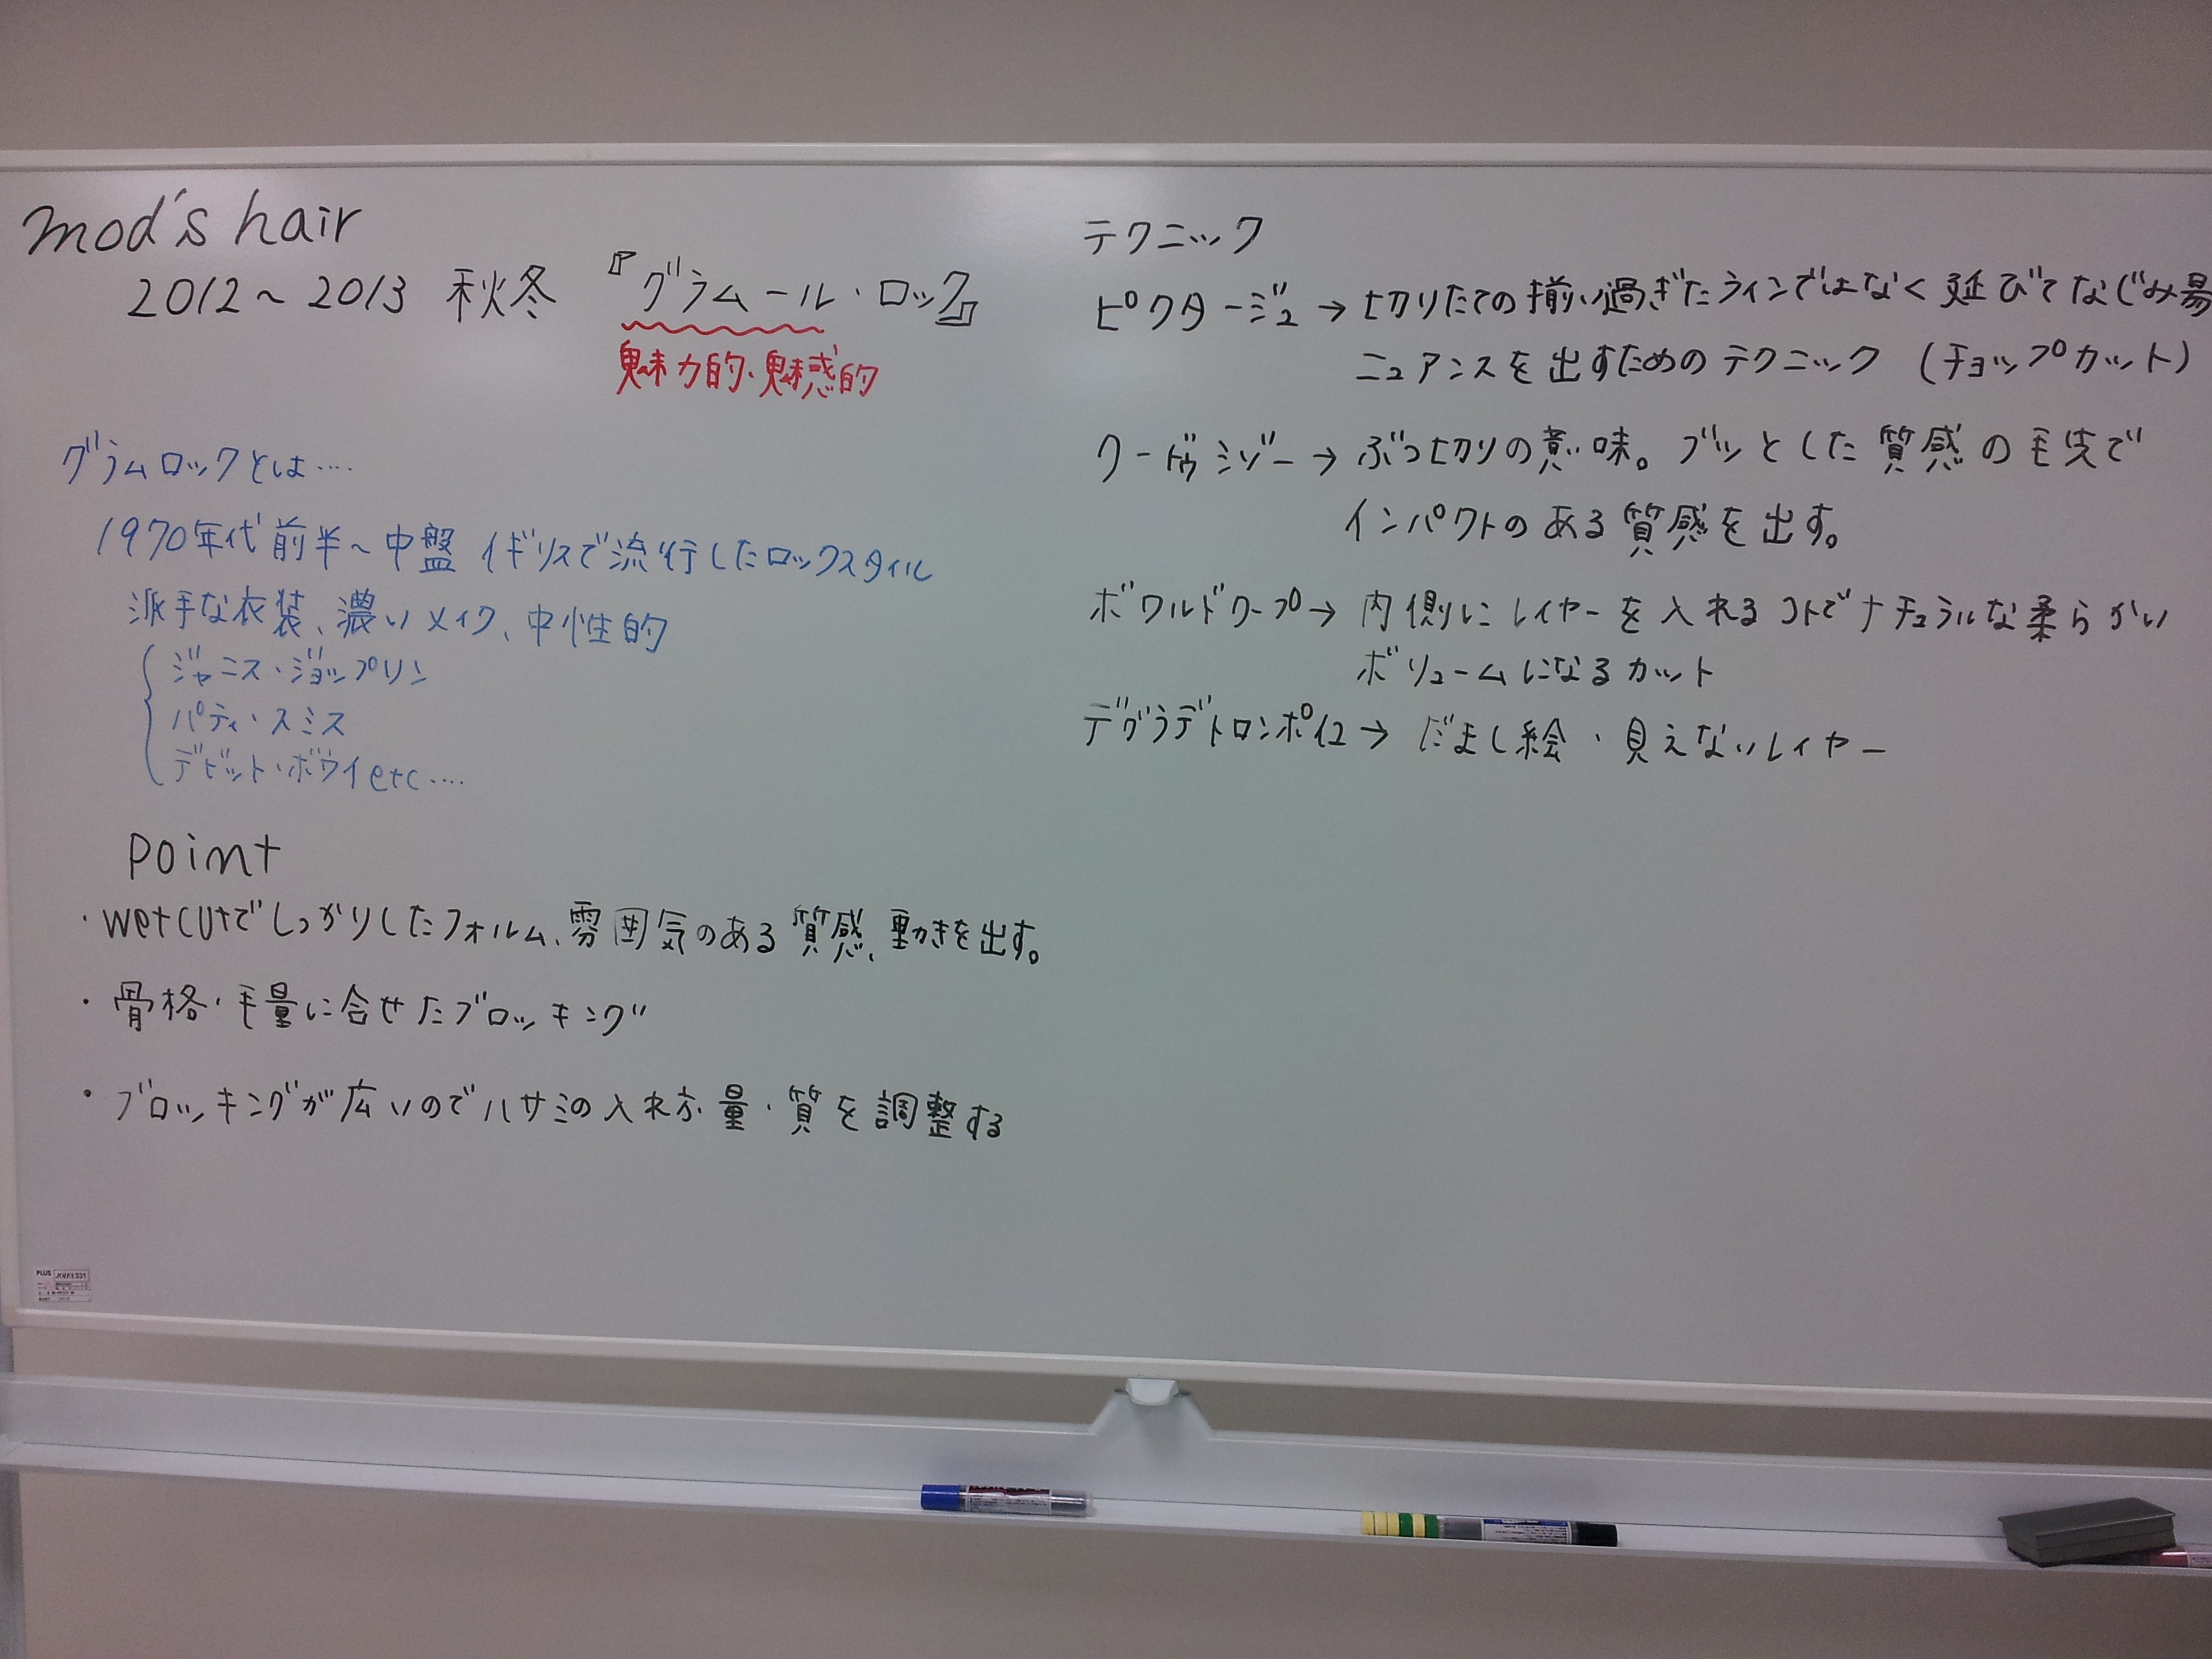 mod's hair
2012～2013 秋冬 『グラムール・ロック』
魅力的・魅惑的
グラムロックとは‥‥
1970年代前半～中盤 イギリスで流行したロックスタイル
派手な衣装、濃いメイク、中性的
ジャニス・ジョップリン
パティ・スミス
デビット・ボウイetc‥‥
point
・wetcutでしっかりしたフォルム、雰囲気のある質感、動きを出す。
・骨格・毛量に合せたブロッキング
・ブロッキングが広いのでハサミの入れ方・量・質を調整する
テクニック
ピクタージュ→切りたての揃い過ぎたラインではなく延びてなじみ易
ニュアンスを出すためのテクニック（チョップカット）
クードゥシゾー→ぶつ切りの意味。ブツとした質感の毛先で
インパクトのある質感を出す。
ボワルドワープ→内側にレイヤーを入れるコトでナチュラルな柔らかい
ボリュームになるカット
デグラデトロンポイユ→だまし絵・見えないレイヤー
PLUS